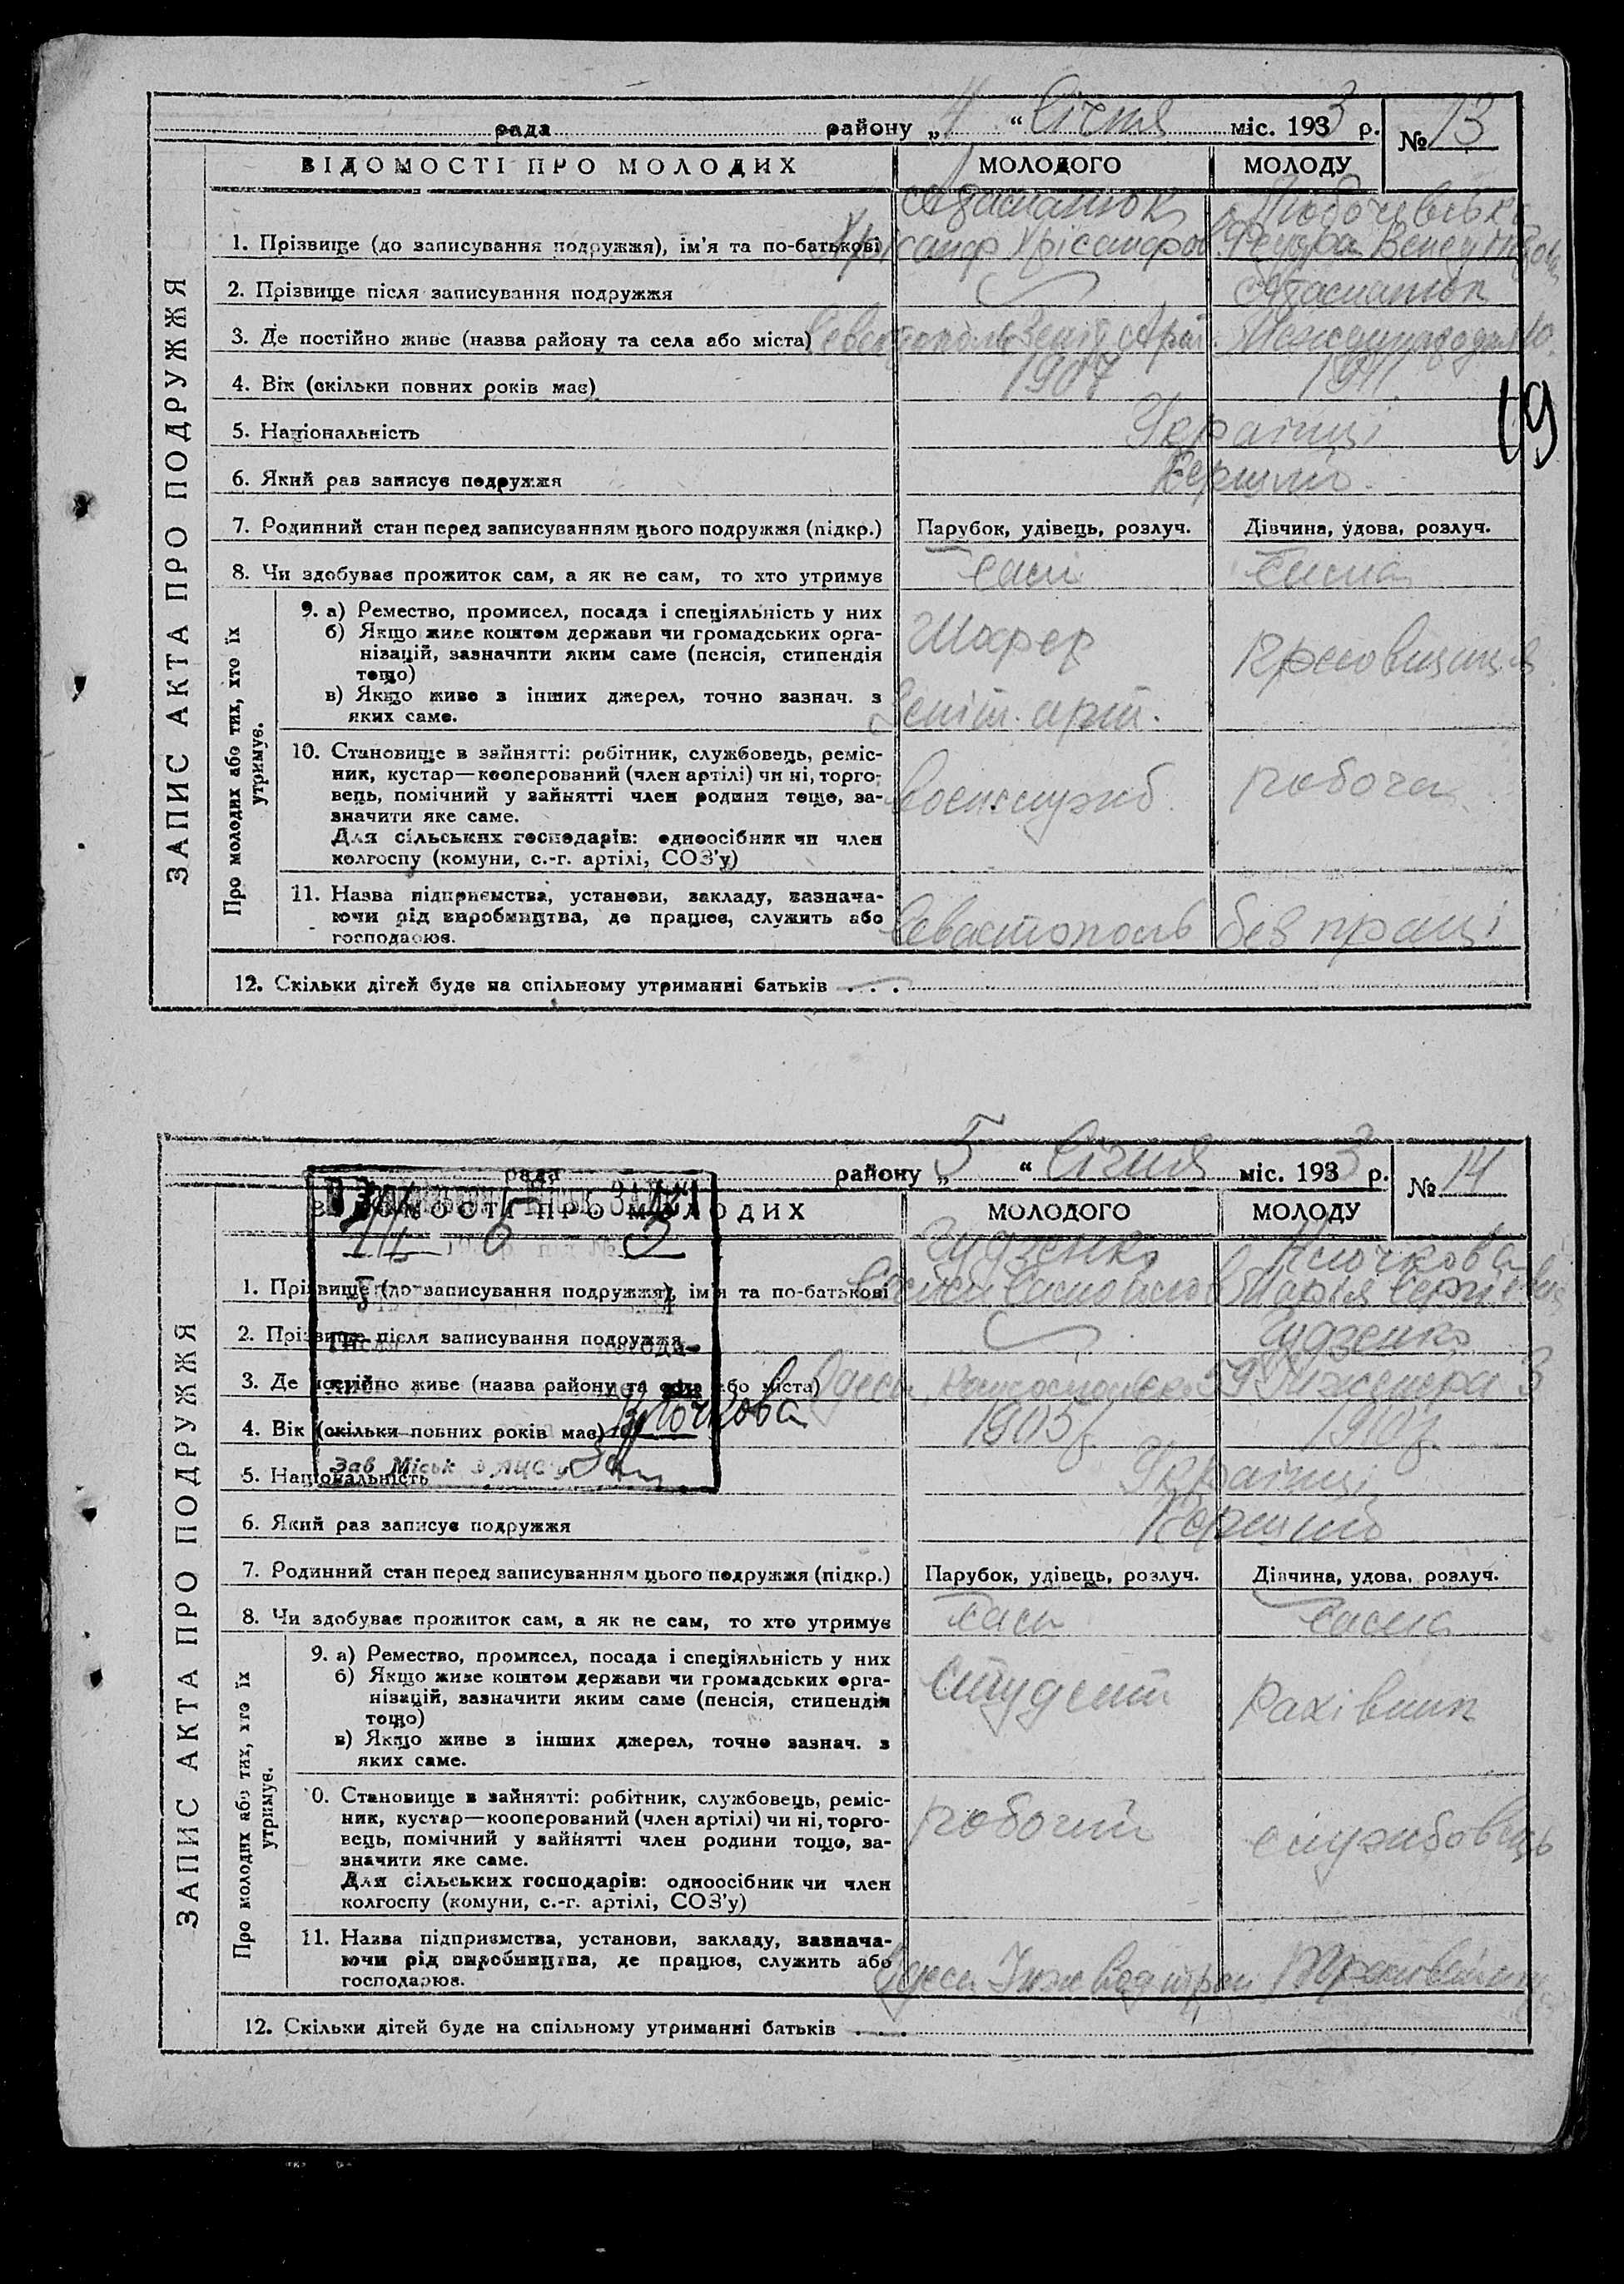 рада району „4“ Січня міс. 1933 р. № 13
ВІДОМОСТІ ПРО МОЛОДИХ МОЛОДОГО МОЛОДУ
ЗАПИС АКТА ПРО ПОДРУЖЖЯ
1. Прізвище (до записування подружжя), ім'я та по-батькові
2. Прізвище після записування подружжя
3. Де постійно живе (назва району та села або міста)
4. Вік (скільки повних років має) 1907 1911
19
5. Національність Українці
6. Який раз записує подружжя Перший
7. Родинний стан перед записуванням цього подружжя (підкр.) Парубок, удівець, розлуч. Дівчина, удова, розлуч.
8. Чи здобуває прожиток сам, а як не сам, то хто утримує Сам Сама
Про молодих або тих, хто їх утримує.
9. а) Ремество, промисел, посада і спеціяльність у них
б) Якщо живе коштом держави чи громадських орга-
нізацій, зазначити яким саме (пенсія, стипендія
тощо)
в) Якщо живе з інших джерел, точно зазнач. з
яких саме.
Шофер
Зеніт. арт.
10. Становище в зайнятті: робітник, службовець, реміс-
ник, кустар—кооперований (член артілі) чи ні, торго-
вець, помічний у зайнятті член родини тощо, за-
значити яке саме.
Для сільських господарів: одноосібник чи член
колгоспу (комуни, с.-г. артілі, СОЗ'у)
Военнслужб. робоча
11. Назва підприємства, установи, закладу, зазнача-
ючи рід виробництва, де працює, служить або
господарює.
Севастополь без праці
12. Скільки дітей буде на спільному утриманні батьків . . .
рада району „5“ Січня міс. 1933 р. № 14
ВІДОМОСТІ ПРО МОЛОДИХ МОЛОДОГО МОЛОДУ
ЗАПИС АКТА ПРО ПОДРУЖЖЯ
Гудзенко Клочкова
1. Прізвище (до записування подружжя), ім'я та по-батькові Марія Сергіївна
2. Прізвище після записування подружжя Гудзенко
3. Де постійно живе (назва району та села або міста)
Клочкова
4. Вік (скільки повних років має) 1905 1910
Зав Міськ ЗАЦС'у
5. Національність Українці
6. Який раз записує подружжя Перший
7. Родинний стан перед записуванням цього подружжя (підкр.) Парубок, удівець, розлуч. Дівчина, удова, розлуч.
8. Чи здобуває прожиток сам, а як не сам, то хто утримує Сам Сама
Про молодих або тих, хто їх утримує.
9. а) Ремество, промисел, посада і спеціяльність у них
б) Якщо живе коштом держави чи громадських орга-
нізацій, зазначити яким саме (пенсія, стипендія
тощо)
в) Якщо живе з інших джерел, точно зазнач. з
яких саме.
Студент Рахівник
10. Становище в зайнятті: робітник, службовець, реміс-
ник, кустар—кооперований (член артілі) чи ні, торго-
вець, помічний у зайнятті член родини тощо, за-
значити яке саме.
Для сільських господарів: одноосібник чи член
колгоспу (комуни, с.-г. артілі, СОЗ'у)
робочий службовець
11. Назва підприємства, установи, закладу, зазнача-
ючи рід виробництва, де працює, служить або
господарює.
Одеса
12. Скільки дітей буде на спільному утриманні батьків . . . .